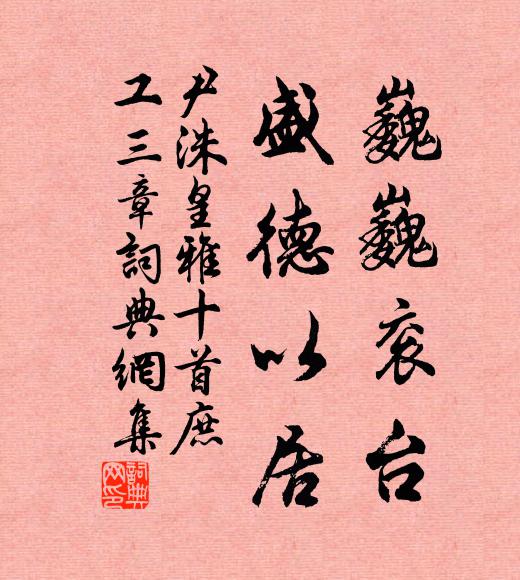 巍巍袞台
盛德以居
尹洙皇雅十首庶
工三章詞典網集
詞典网印